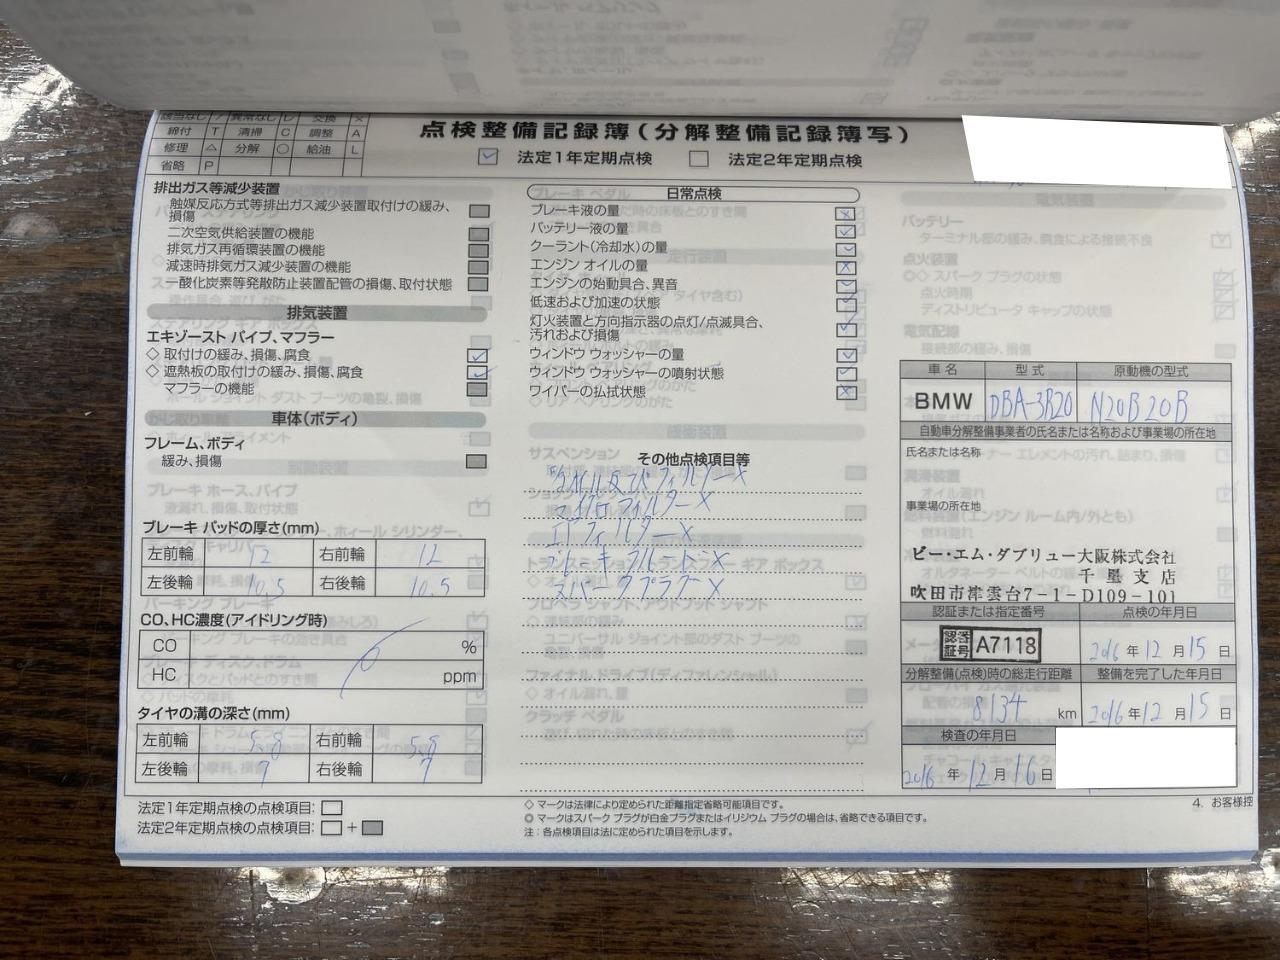 締付 T 清掃 C 調整 A
修理 △ 分解 ○ 給油 L
省略 P
点検整備記録簿(分解整備記録簿写)
✓ 法定1年定期点検 □ 法定2年定期点検
排出ガス等減少装置
触媒反応方式等排出ガス減少装置取付けの緩み、
損傷
二次空気供給装置の機能
排気ガス再循環装置の機能
減速時排気ガス減少装置の機能
一酸化炭素等発散防止装置配管の損傷、取付状態
排気装置
エキゾースト パイプ、マフラー
◇ 取付けの緩み、損傷、腐食 ✓
◇ 遮熱板の取付けの緩み、損傷、腐食 ✓
マフラーの機能
車体(ボディ)
フレーム、ボディ
緩み、損傷
ブレーキ パッドの厚さ(mm)
左前輪 12 右前輪 12
左後輪 10.5 右後輪 10.5
CO、HC濃度(アイドリング時)
CO %
HC ppm
タイヤの溝の深さ(mm)
左前輪 5.8 右前輪 5.8
左後輪 7 右後輪 7
法定1年定期点検の点検項目: □
法定2年定期点検の点検項目: □+■
日常点検
ブレーキ液の量 ×
バッテリー液の量 ✓
クーラント(冷却水)の量 ✓
エンジン オイルの量 ×
エンジンの始動具合、異音 ✓
低速および加速の状態 ✓
灯火装置と方向指示器の点灯/点滅具合、
汚れおよび損傷 ✓
ウィンドウ ウォッシャーの量 ✓
ウィンドウ ウォッシャーの噴射状態 ✓
ワイパーの払拭状態 ×
その他点検項目等
オイル及びフィルター×
マイクロフィルター×
エアフィルター×
ブレーキフルード×
スパークプラグ×
◇ マークは法律により定められた距離指定省略可能項目です。
◎ マークはスパーク プラグが白金プラグまたはイリジウム プラグの場合は、省略できる項目です。
注:各点検項目は法に定められた項目を示します。
車名 型式 原動機の型式
BMW DBA-3B20 N20B20B
自動車分解整備事業者の氏名または名称および事業場の所在地
氏名または名称
事業場の所在地
ビー・エム・ダブリュー大阪株式会社
千里支店
吹田市津雲台7-1-D109-101
認証または指定番号 点検の年月日
認証番号 A7118 2016年12月15日
分解整備(点検)時の総走行距離 整備を完了した年月日
8,134 km 2016年12月15日
検査の年月日
2016年12月16日
4. お客様控